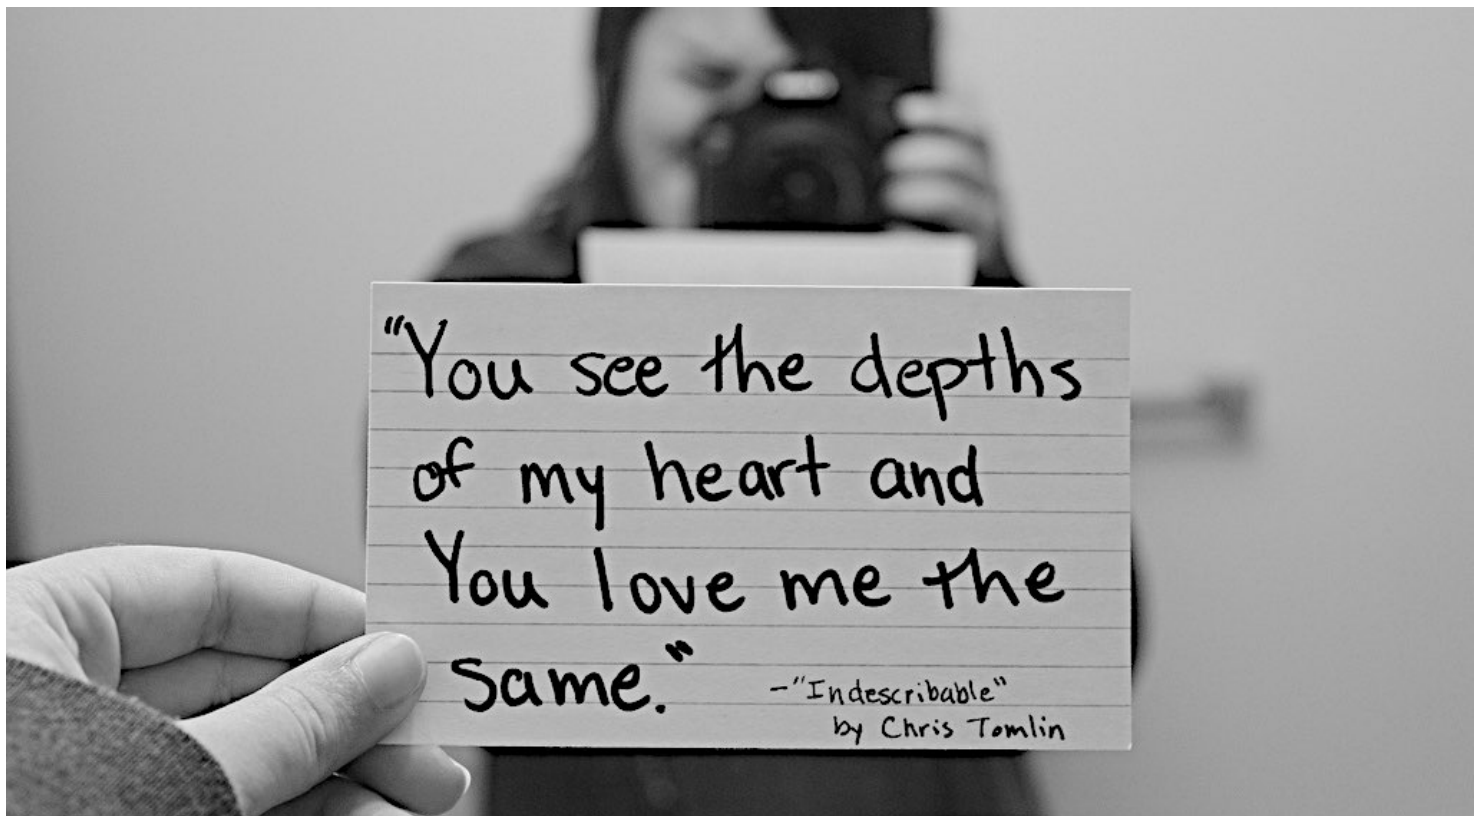 "You see the depths
of my heart and
You love me the
same."
-"Indescribable"
by Chris Tomlin